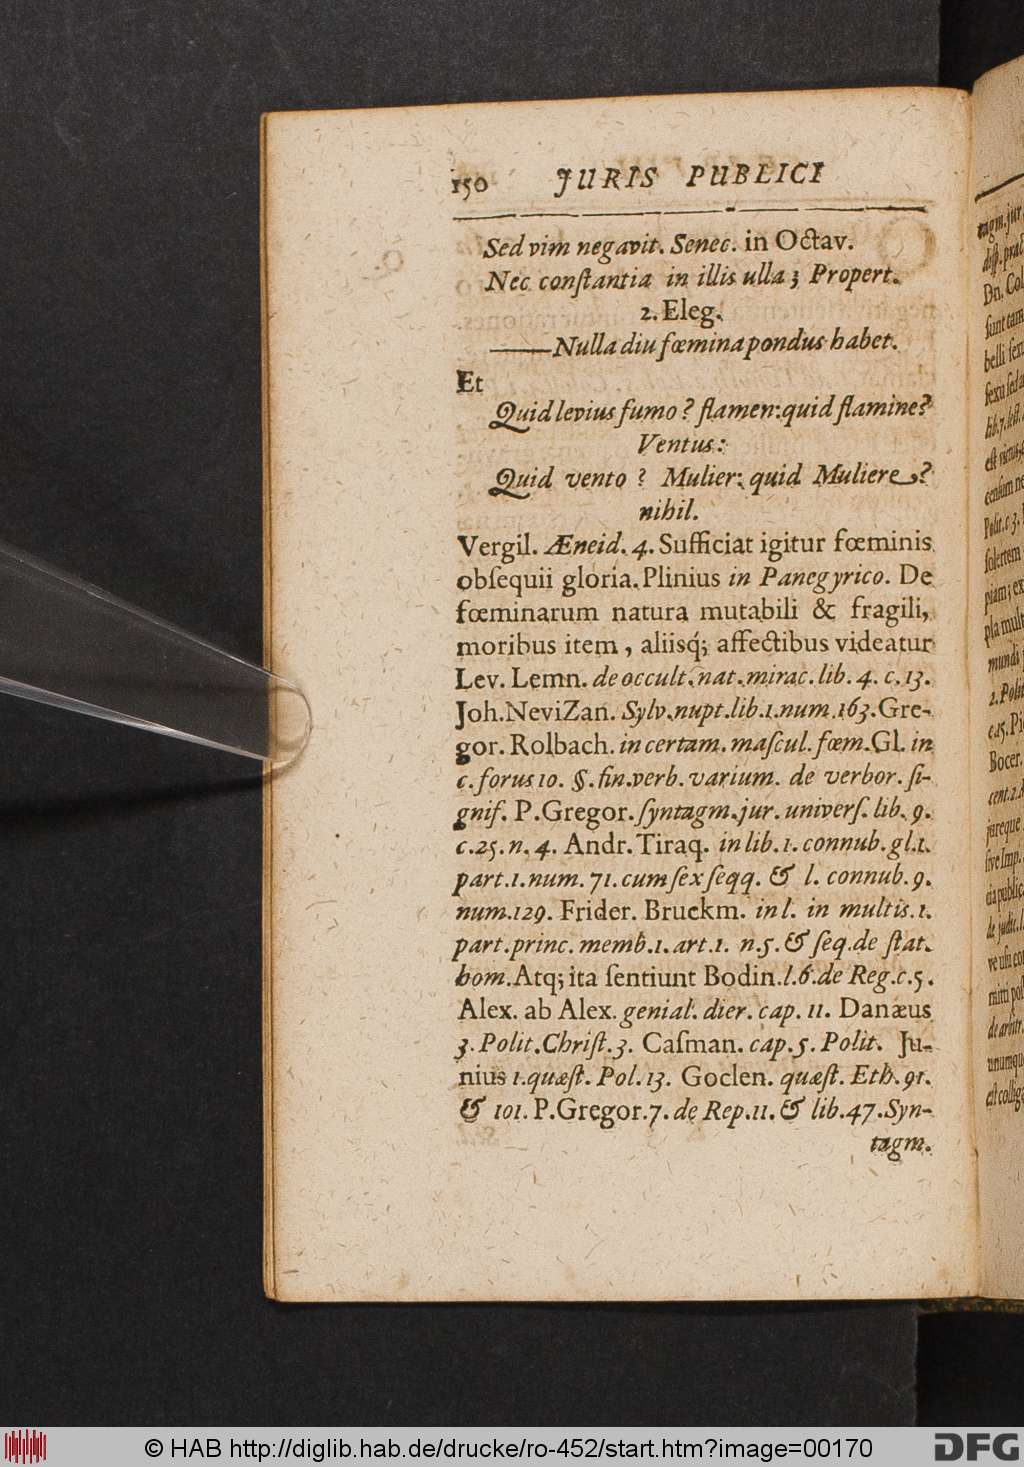 150 JURIS PUBLICI
Sed vim negavit. Senec. in Octav.
Nec conſtantia in illis ulla; Propert.
2. Eleg.
——Nulla diu fœmina pondus habet.
Et
Quid levius fumo? flamen: quid flamine?
Ventus:
Quid vento? Mulier: quid Muliere?
nihil.
Vergil. Æneid. 4. Sufficiat igitur fœminis
obſequii gloria. Plinius in Panegyrico. De
fœminarum natura mutabili & fragili,
moribus item, aliisq́; affectibus videatur
Lev. Lemn. de occult. nat. mirac. lib. 4. c. 13.
Joh. NeviZan. Sylv. nupt. lib. 1. num. 163. Gre-
gor. Rolbach. in certam. maſcul. fœm. Gl. in
c. forus 10. §. fin. verb. varium. de verbor. ſi-
gnif. P. Gregor. ſyntagm. jur. univerſ. lib. 9.
c. 25. n. 4. Andr. Tiraq. in lib. 1. connub. gl. 1.
part. 1. num. 71. cum ſex ſeqq. & l. connub. 9.
num. 129. Frider. Bruckm. in l. in multis. 1.
part. princ. memb. 1. art. 1. n. 5. & ſeq. de ſtat.
hom. Atq; ita ſentiunt Bodin. l. 6. de Reg. c. 5.
Alex. ab Alex. genial. dier. cap. 11. Danæus
3. Polit. Chriſt. 3. Caſman. cap. 5. Polit. Ju-
nius 1. quæſt. Pol. 13. Goclen. quæſt. Eth. 91.
& 101. P. Gregor. 7. de Rep. 11. & lib. 47. Syn-
tagm.
tagm. jur.
Dn. Col
ſunt tam
belli ſex
ſexu ſed
lib. 7.
eſt
Polit. c. 3.
ſolertem
piam; ex
pla mult
mundi
2. Polit
c. 15. Pi
Bocer.
cent. 2.
jureque
ſive Imp.
cia public
de judic. l.
ve uſu
mitti poſ
de arbitr.
unumqu
eſt collig
© HAB http://diglib.hab.de/drucke/ro-452/start.htm?image=00170
DFG